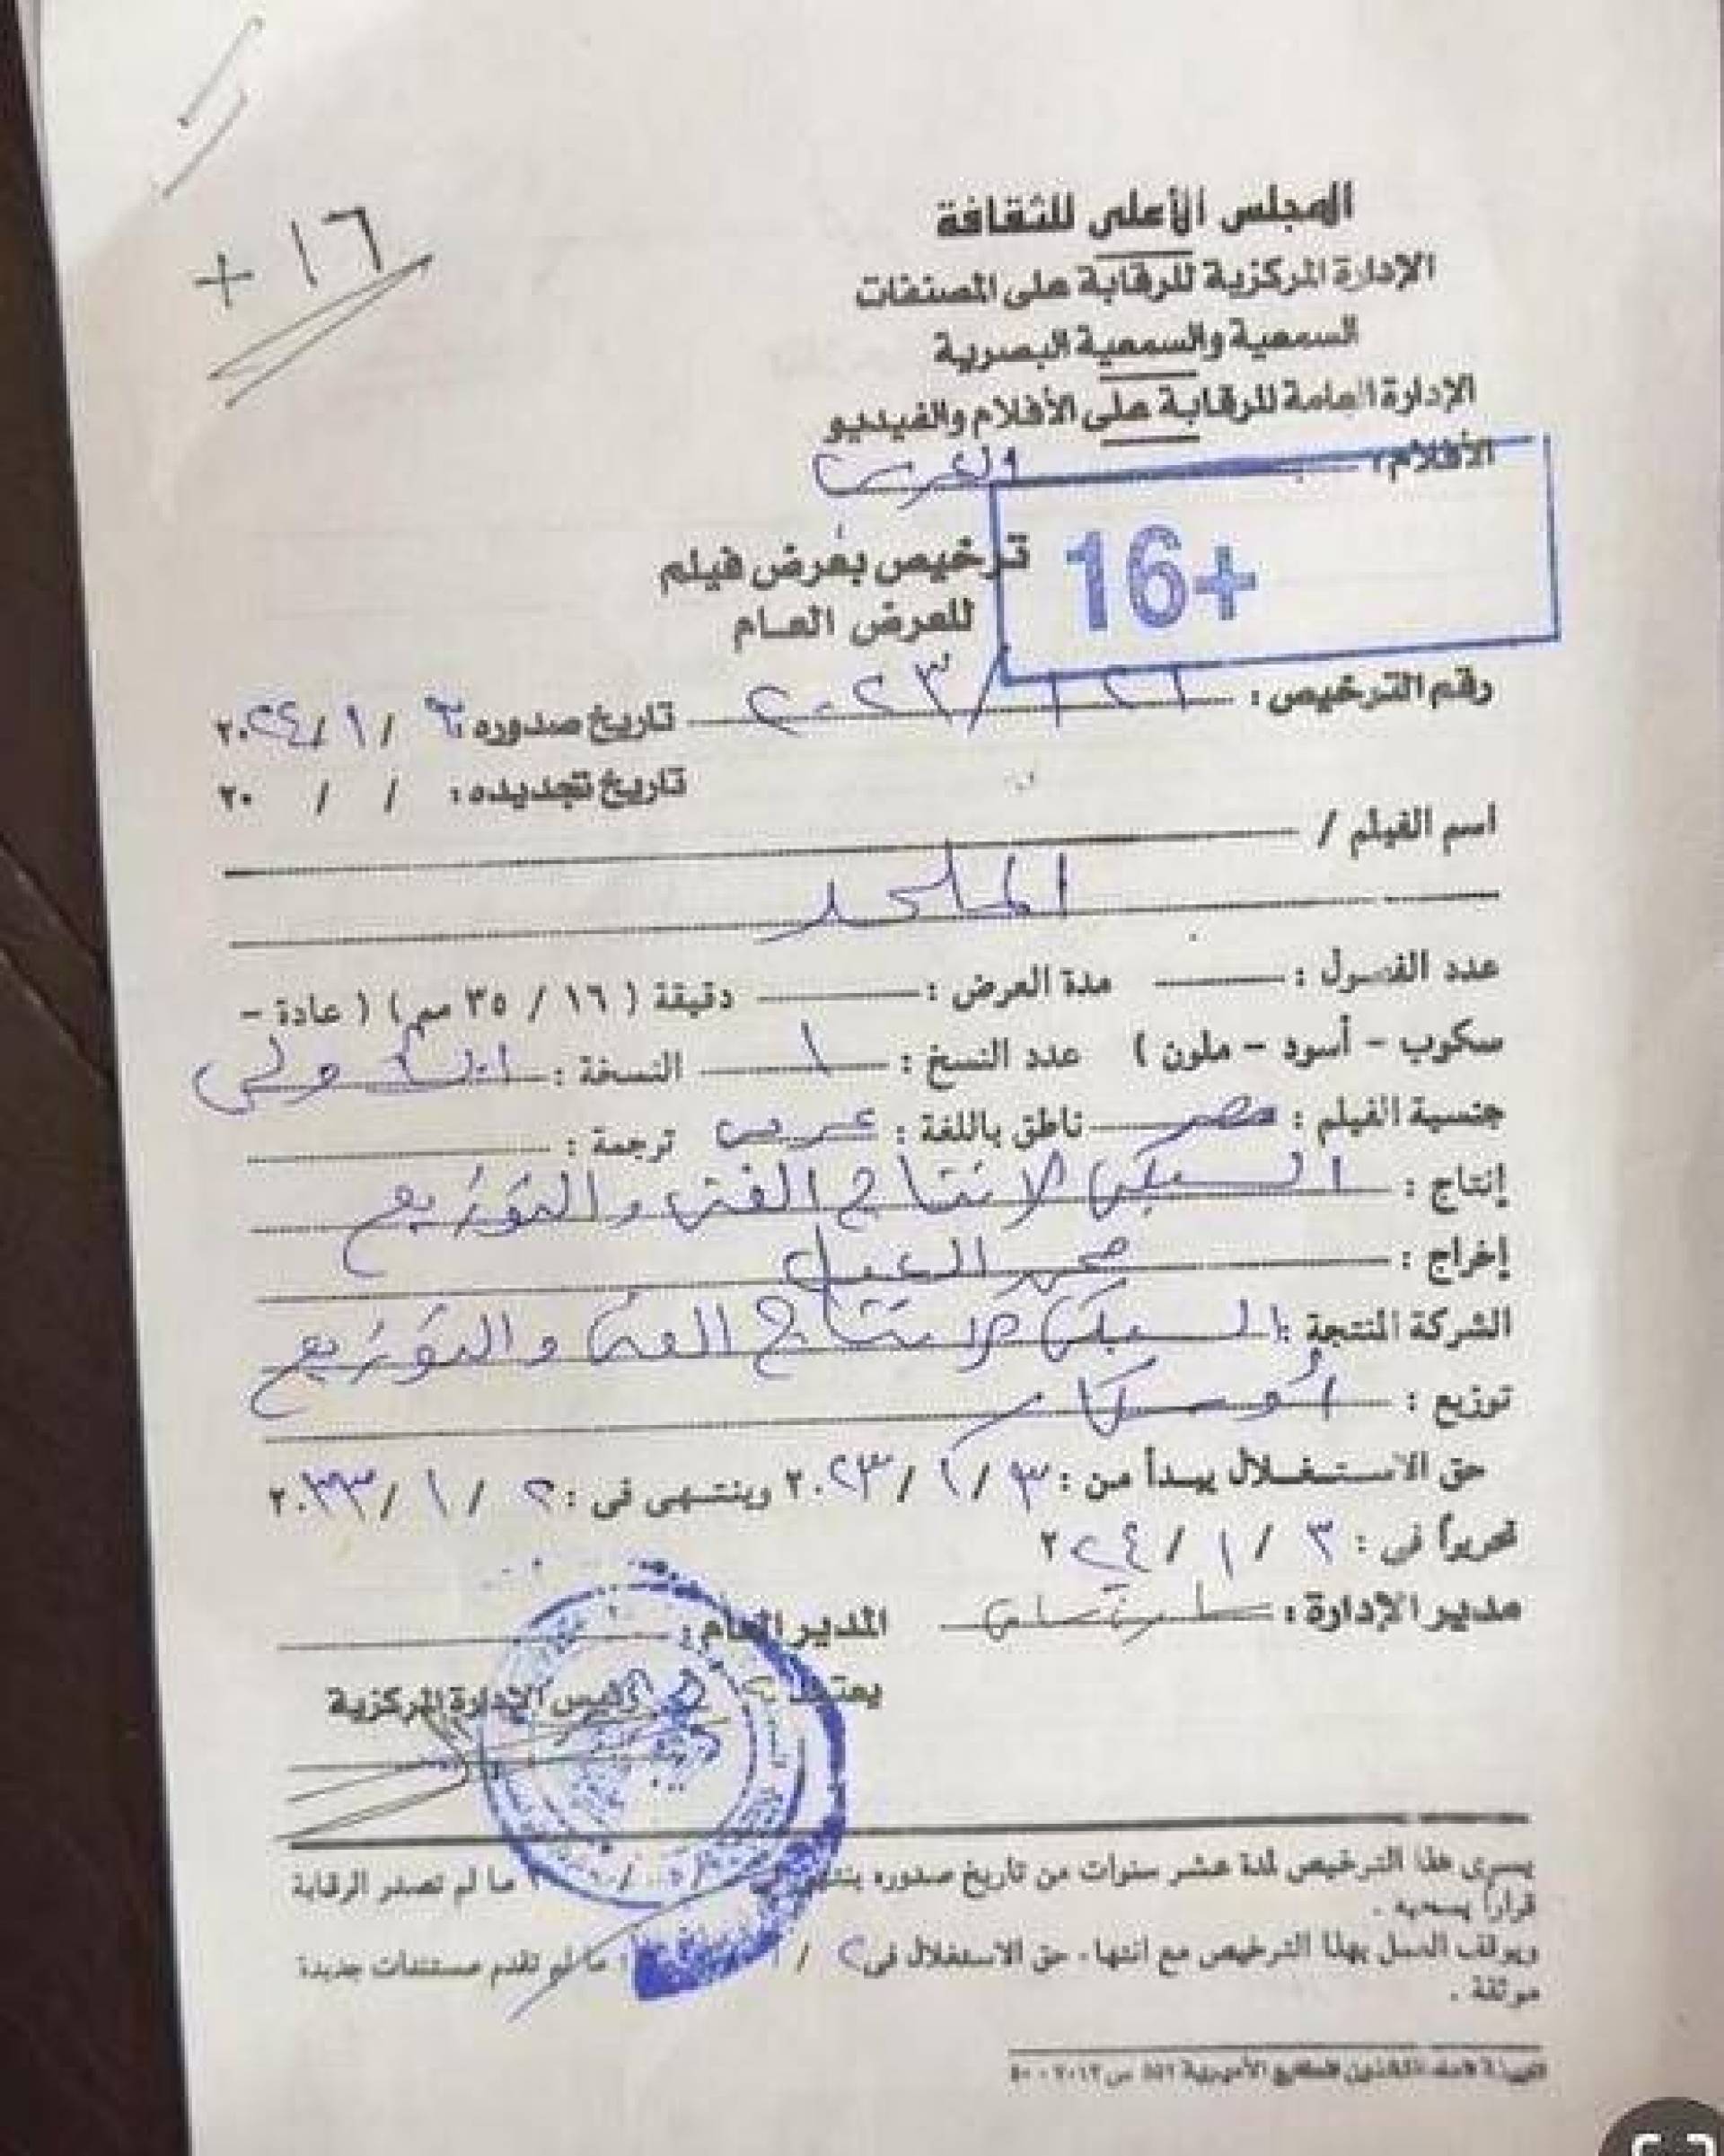 + ١٦
المجلس الأعلى للثقافة
الإدارة المركزية للرقابة على المصنفات
السمعية والسمعية البصرية
الإدارة العامة للرقابة على الأفلام والفيديو
الأفلام :
16+
ترخيص بعرض فيلم
للعرض العام
رقم الترخيص : ١٢١ / ٢٠٢٣ تاريخ صدوره / ١ / ٢٠٢٤
تاريخ تجديده : / / ٢٠
اسم الفيلم /
الملحد
عدد الفصول : مدة العرض : دقيقة ( ١٦ / ٣٥ مم ) ( عادة -
سكوب - أسود - ملون ) عدد النسخ : ١ النسخة :
جنسية الفيلم : مصر ناطق باللغة : عربى ترجمة :
إنتاج : السبكى لانتاج الفنى والتوزيع
إخراج : محمد العدل
الشركة المنتجة : السبكى لانتاج الفنى والتوزيع
توزيع : أوسكار
حق الاستغلال يبدأ من : ٣ / ١ / ٢٠٢٣ وينتهى فى : ٢ / ١ / ٢٠٣٣
تحريراً فى : ٣ / ١ / ٢٠٢٤
مدير الإدارة : المدير العام :
يعتمد رئيس الإدارة المركزية
يسرى هذا الترخيص لمدة عشر سنوات من تاريخ صدوره ما لم تصدر الرقابة
قراراً بسحبه .
ويوقف العمل بهذا الترخيص مع انتهاء حق الاستغلال فى ٢ / ما لم تقدم مستندات جديدة
موثقة .